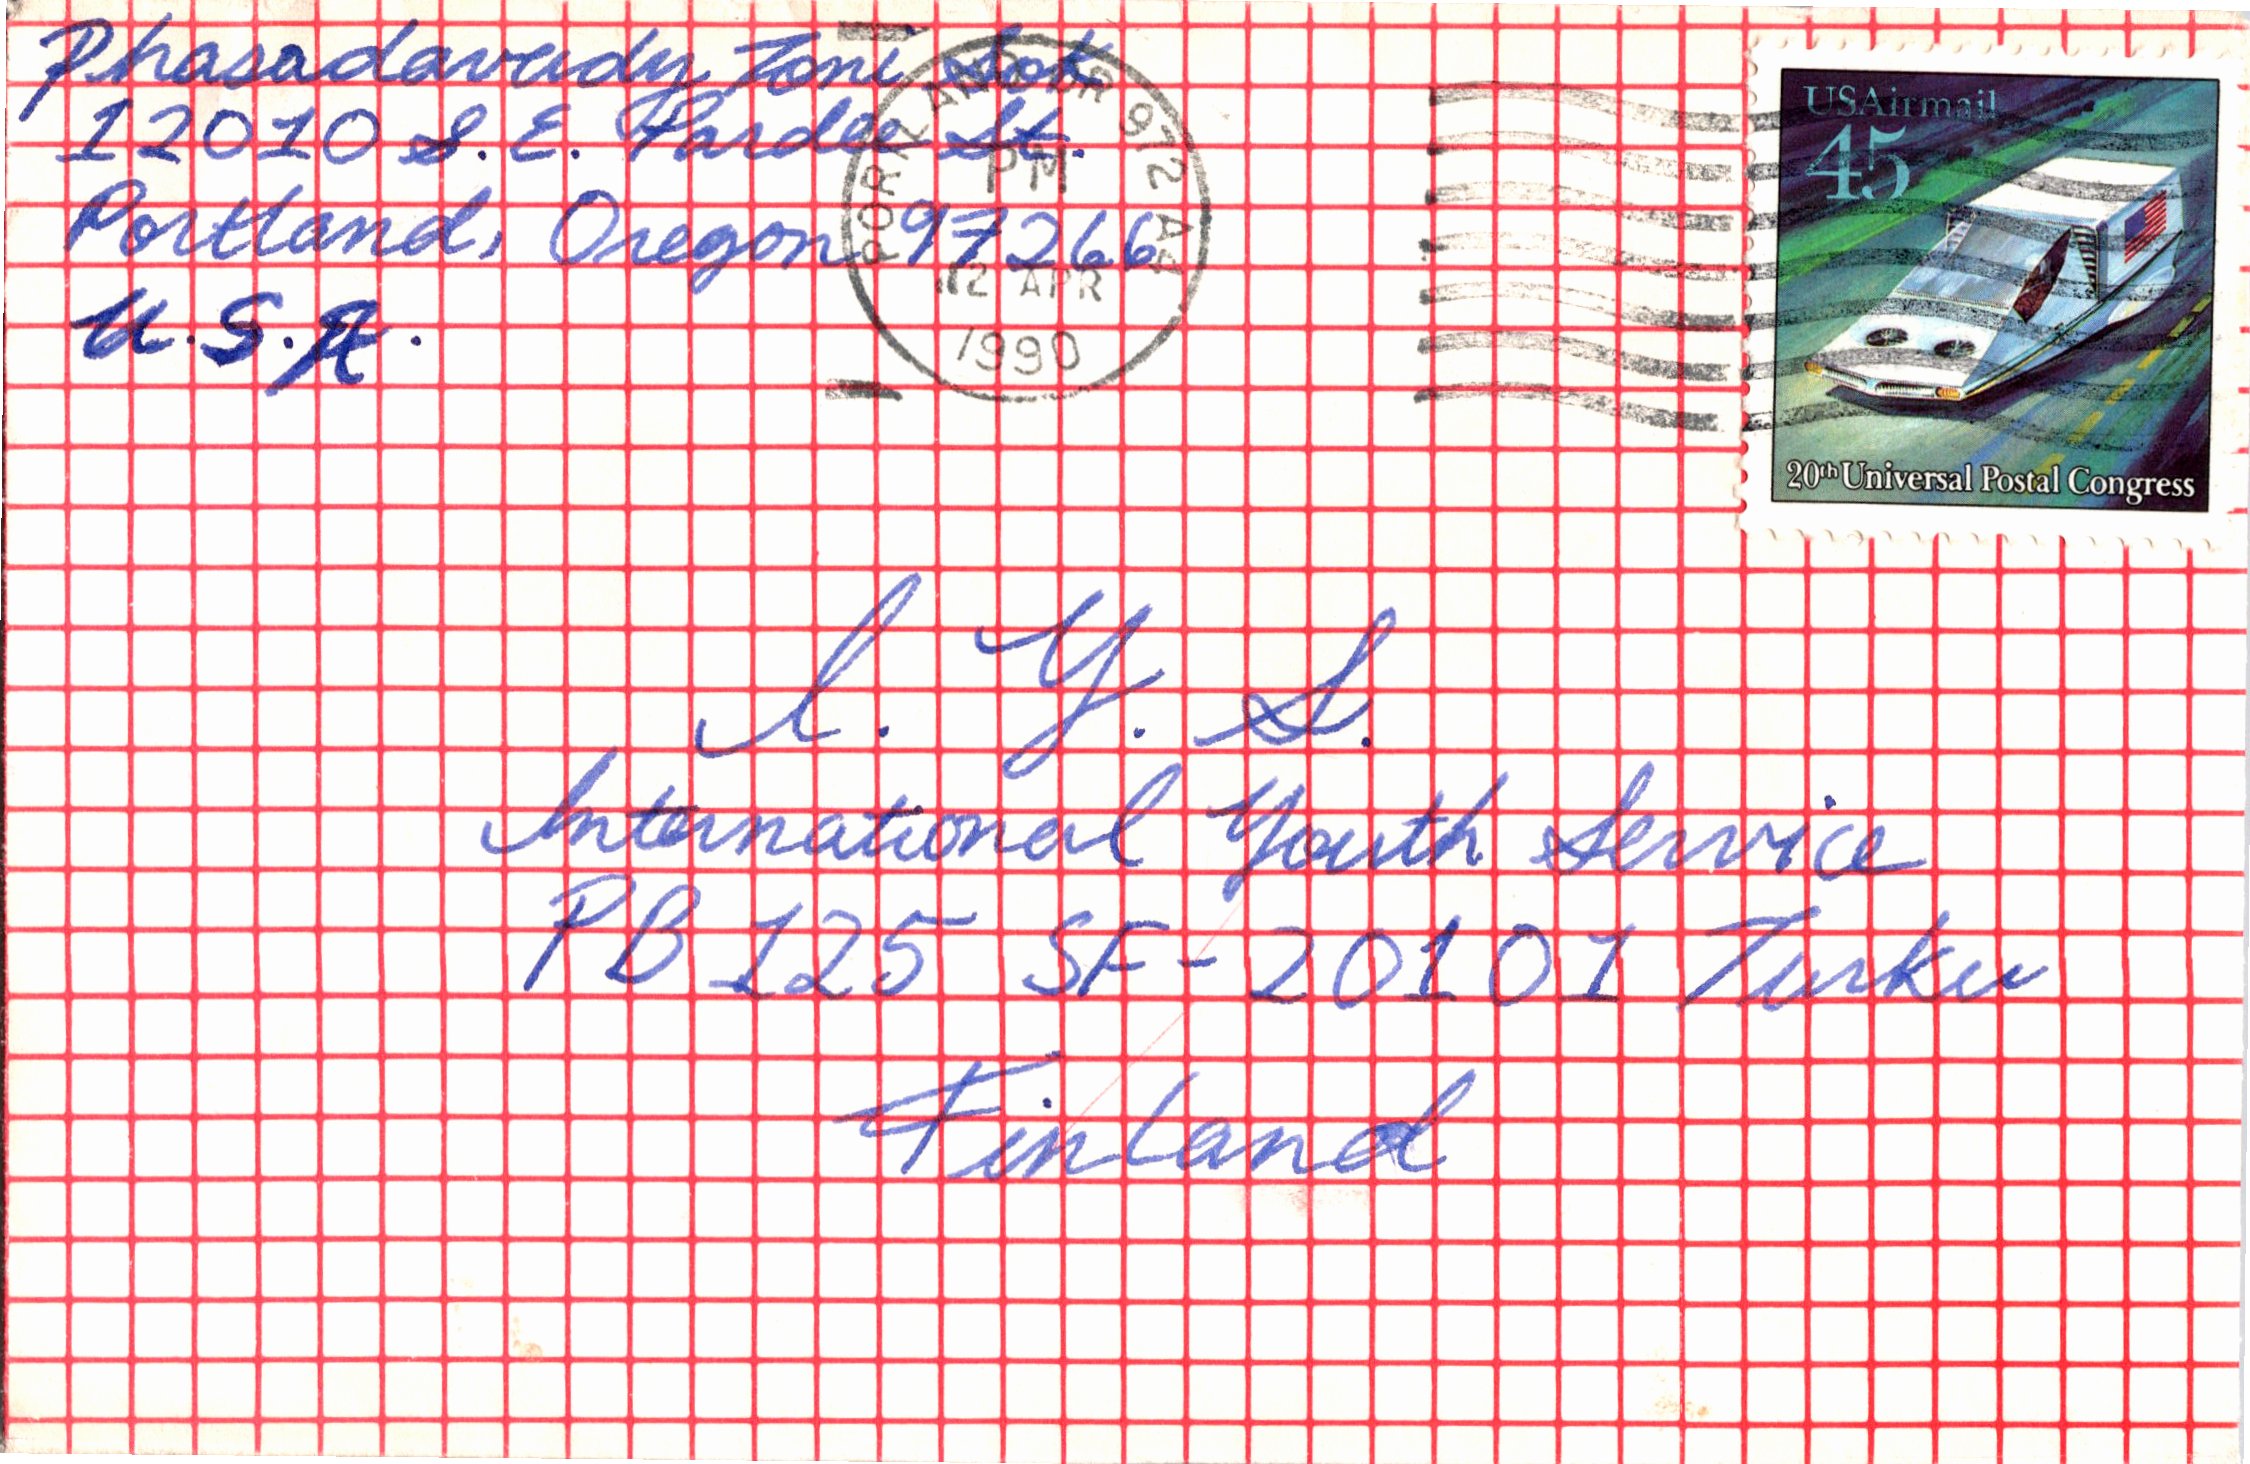 Phasadavudy Toni Sok
12010 S.E. Pardee St.
Portland, Oregon 97266
U.S.A.
PORTLAND OR 972
PM
12 APR
1990
USAirmail
45
20th Universal Postal Congress
I. Y. S.
International Youth Service
PB 125 SF-20101 Turku
Finland